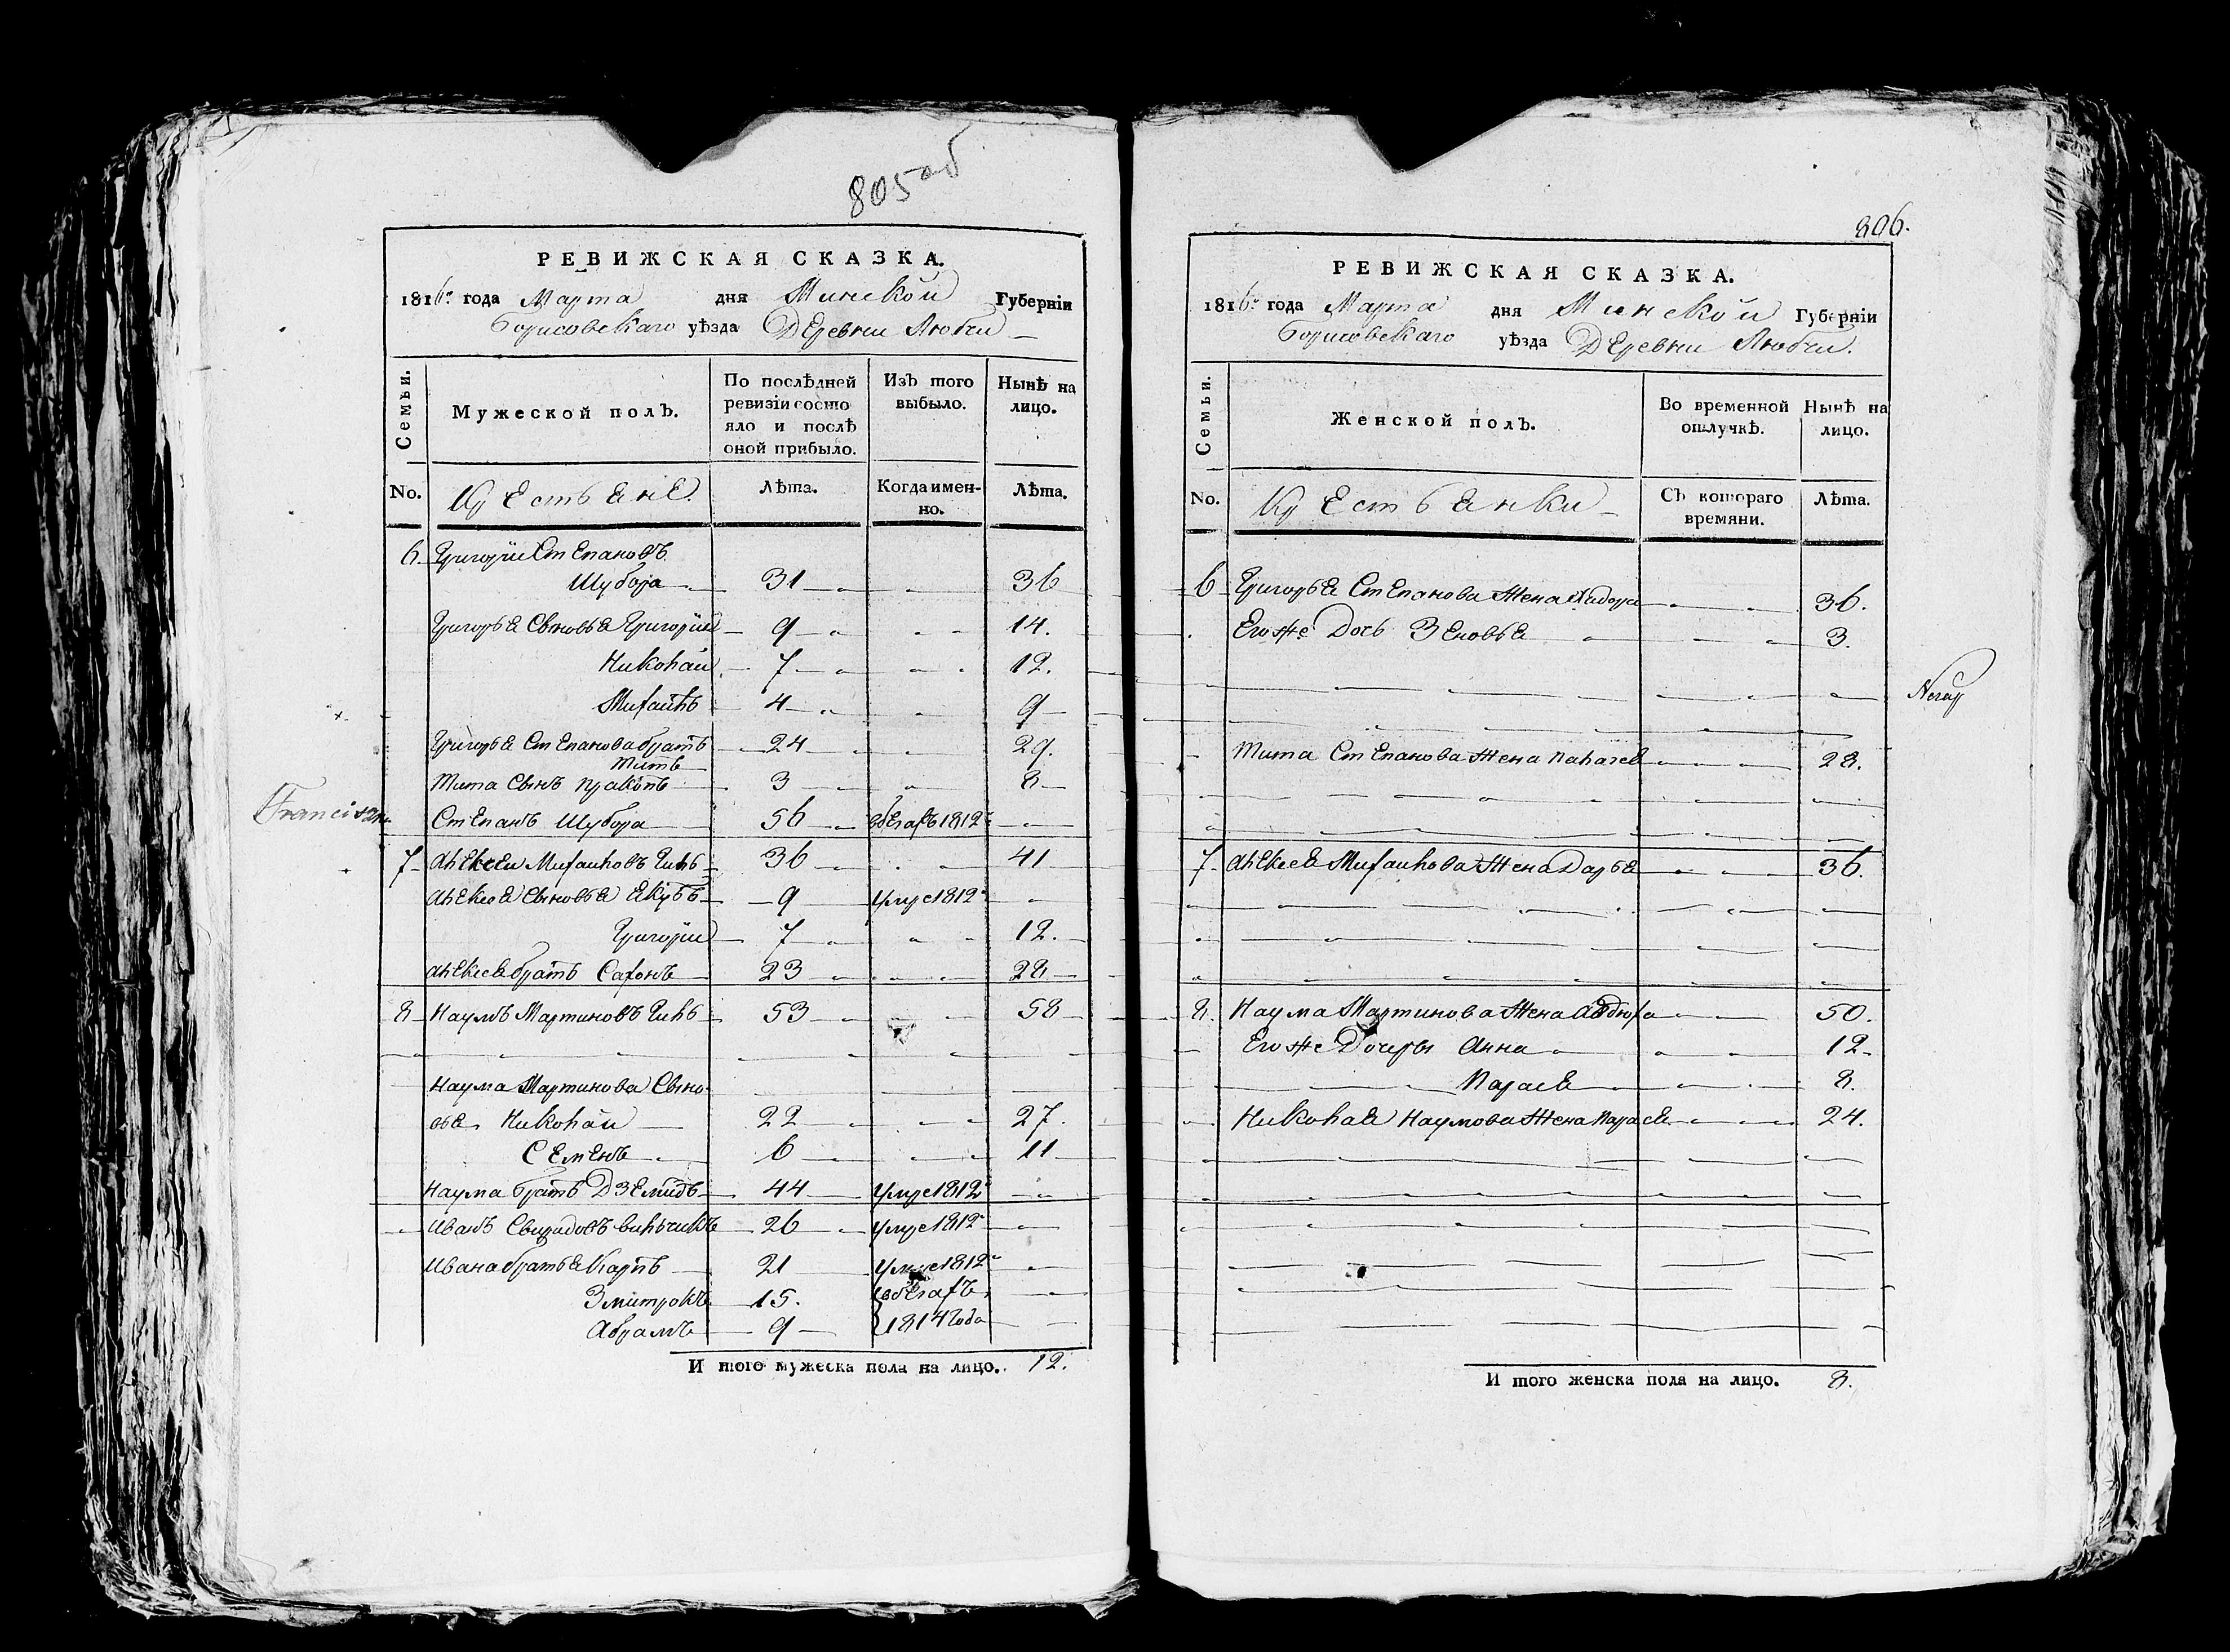 805 об
РЕВИЖСКАЯ СКАЗКА.
1816го года Марта дня Минской Губерніи
Борисовскаго уѣзда Деревни Любчи
Семьи.
Мужеской полъ.
По послѣдней ревизіи состо
яло и послѣ
оной прибыло.
Изъ того выбыло.
Нынѣ на лицо.
No.
Крестьяне.
Лѣта.
Когда имен-
но.
Лѣта.
6. Григорій Степановъ
Шубора 31 36
Григорья Сыновья Григорій 9 14.
Николай 7 12.
Михайлъ 4 9
Григорья Степанова братъ 24 29.
Титъ
Тита Сынъ Пракопъ 3 8
Francisz
Степанъ Шубора 56 1812
7 Алексей Михайловъ 36 41
Алексея Сыновья Якубъ 9 умре 1812
Григорій 7 12.
Алексея братъ Сафонъ 23 28
8 Наумъ Мартиновъ 53 58
Наума Мартинова Сыно
вья Николай 22 27.
Семенъ 6 11
Наума братъ Дземидъ 44 умре 1812
Иванъ Свиридовъ 26 умре 1812
Ивана братья Карпъ 21 умре 1812
Змитрокъ 15.
Абрамъ 9 1814 года
И того мужеска пола на лицо. 12.
806.
РЕВИЖСКАЯ СКАЗКА.
1816го года Марта дня Минской Губерніи
Борисовскаго уѣзда Деревни Любчи.
Семьи.
Женской полъ.
Во временной
отлучкѣ.
Нынѣ на
лицо.
No.
Крестьянки
Съ котораго
времяни.
Лѣта.
6 Григорья Степанова Жена 36.
Егоже Дочь Зеновья 3.
Тита Степанова Жена 28.
7 Алексея Михайлова Жена Дарья 36.
8. Наума Мартинова Жена Авдюха 50.
Егоже Дочеры Анна 12
Парася 8.
Николая Наумова Жена Парася 24.
И того женска пола на лицо. 8.